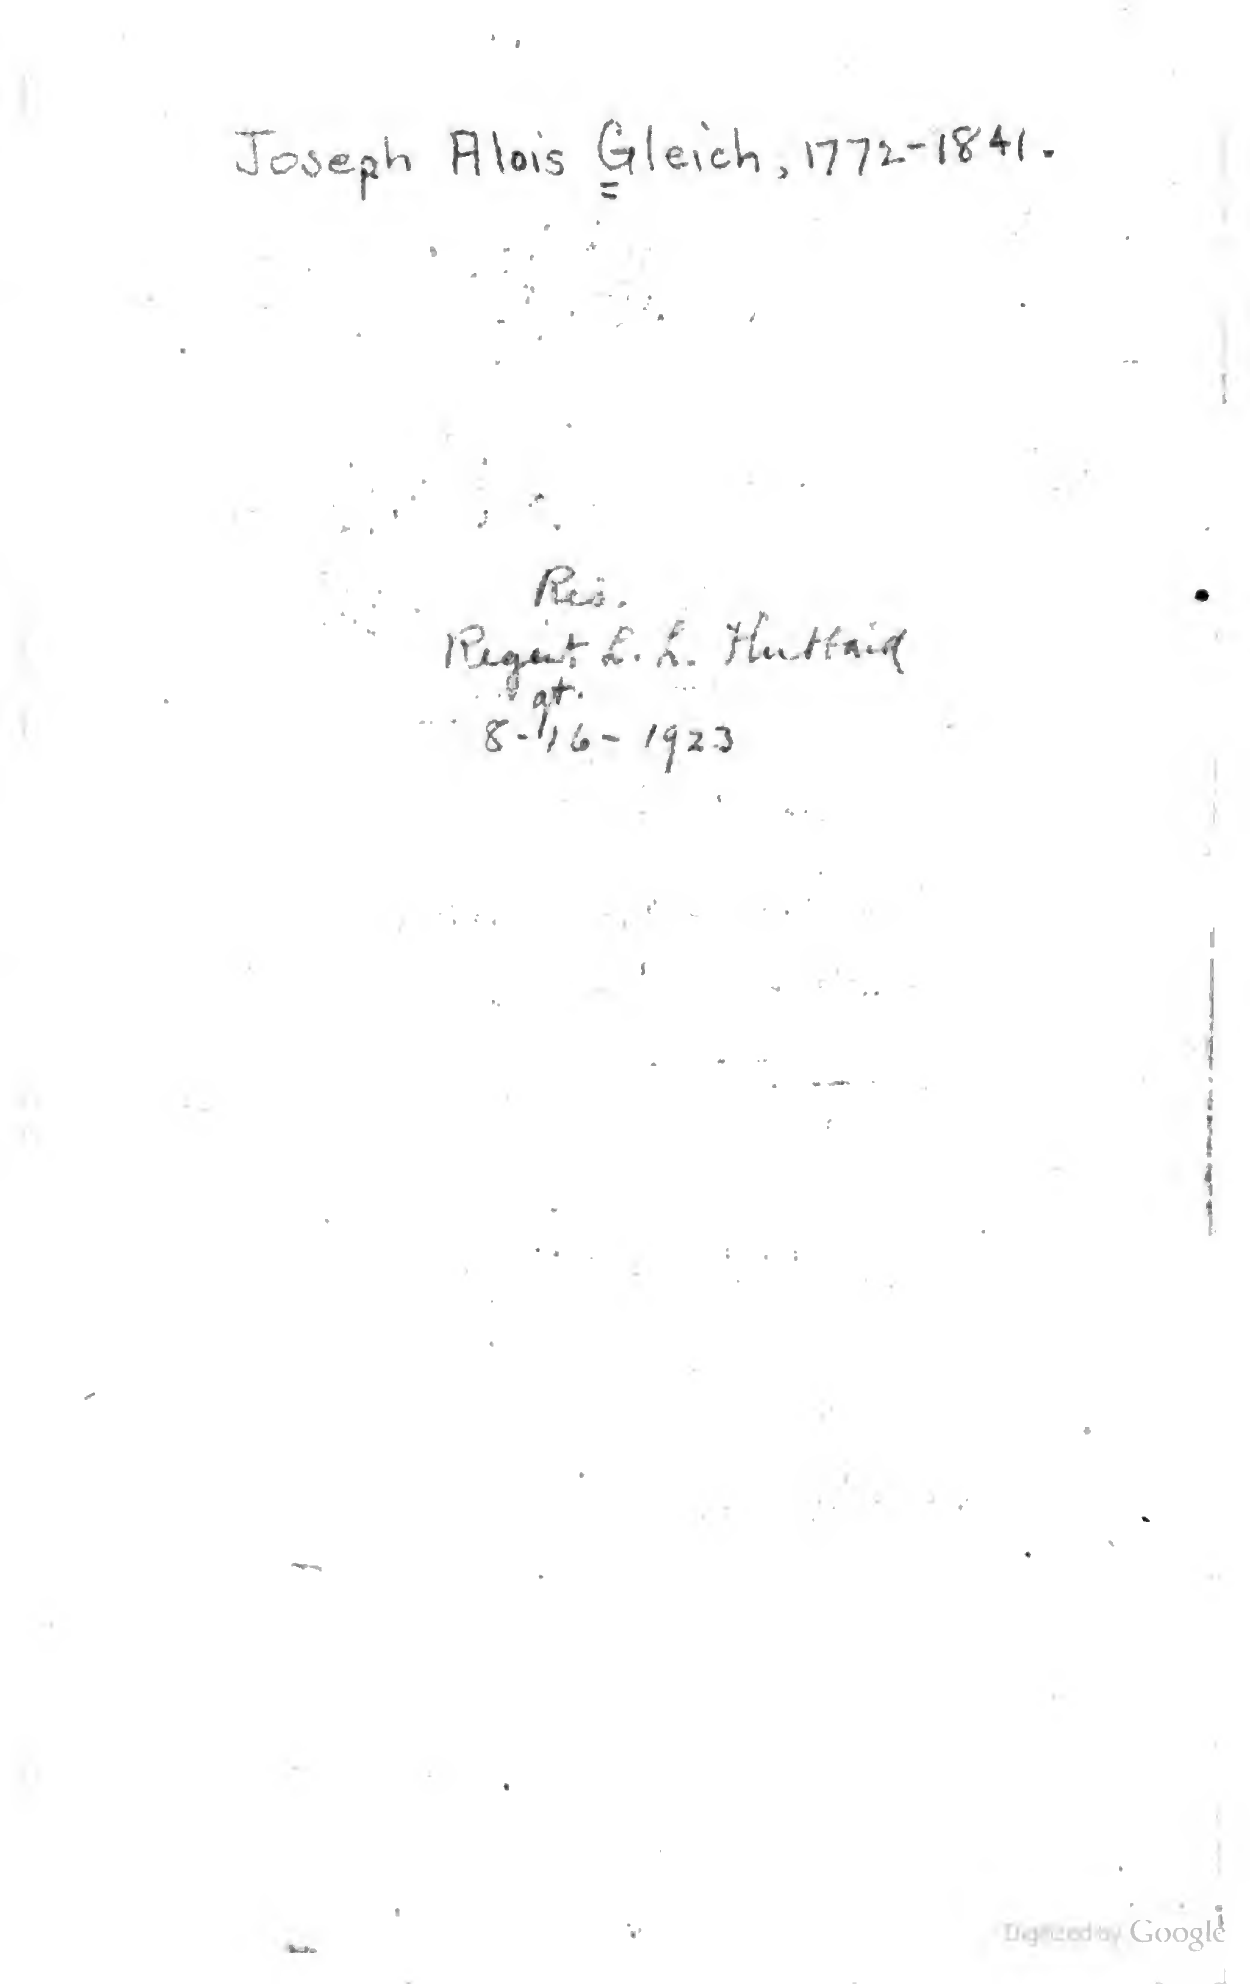 Joseph Alois Gleich, 1772-1841.
Regent L. L. Hubbard
gt.
8-16-1923
Digitized by Google